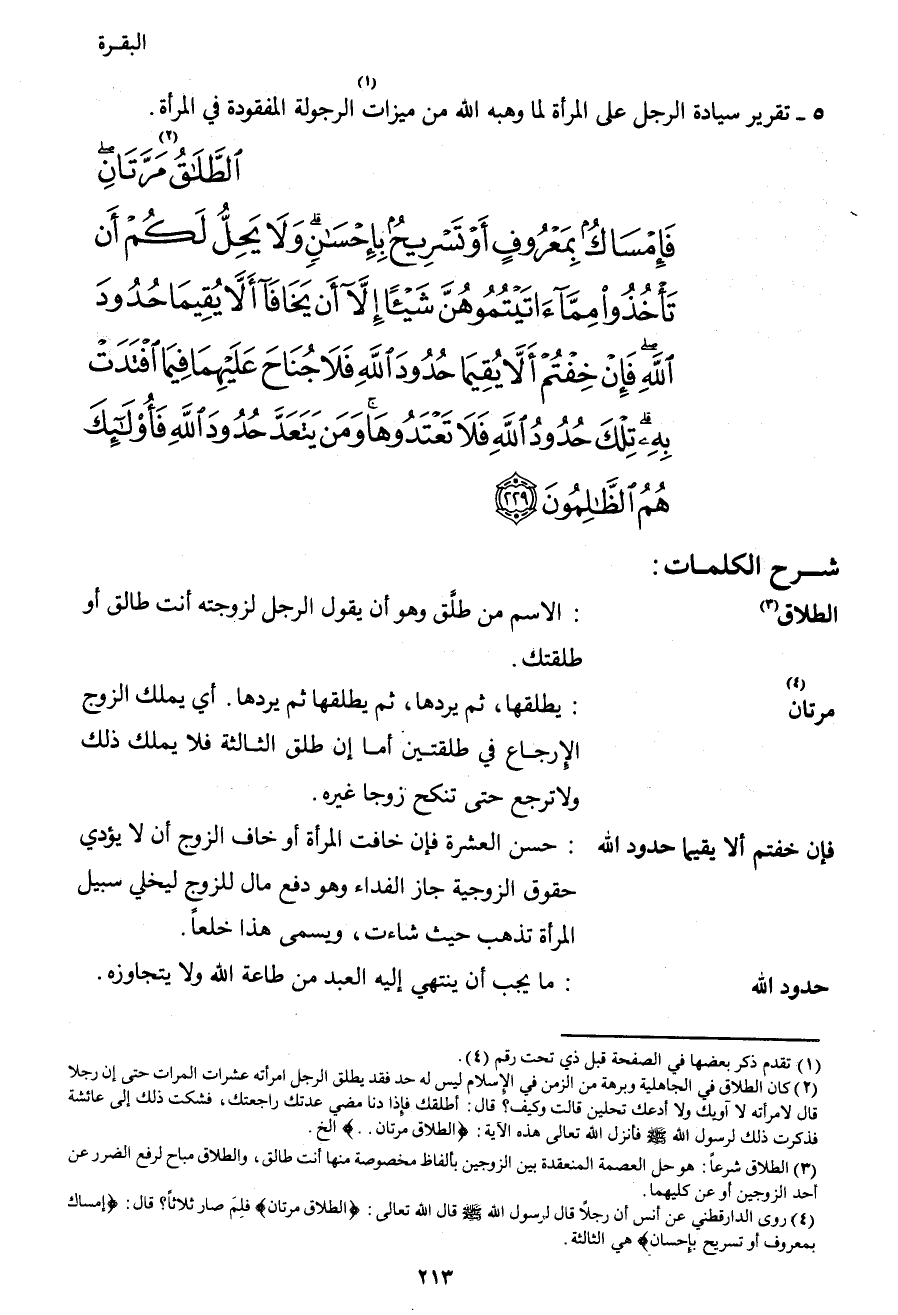 البقـرة
٥ ـ تقرير سيادة الرجل على المرأة لما وهبه الله من ميزات(١) الرجولة المفقودة في المرأة .
ٱلطَّلَٰقُ(٢) مَرَّتَانِۖ
فَإِمۡسَاكُۢ بِمَعۡرُوفٍ أَوۡ تَسۡرِيحُۢ بِإِحۡسَٰنٖۗ وَلَا يَحِلُّ لَكُمۡ أَن
تَأۡخُذُواْ مِمَّآ ءَاتَيۡتُمُوهُنَّ شَيۡـًٔا إِلَّآ أَن يَخَافَآ أَلَّا يُقِيمَا حُدُودَ
ٱللَّهِۖ فَإِنۡ خِفۡتُمۡ أَلَّا يُقِيمَا حُدُودَ ٱللَّهِ فَلَا جُنَاحَ عَلَيۡهِمَا فِيمَا ٱفۡتَدَتۡ
بِهِۦۗ تِلۡكَ حُدُودُ ٱللَّهِ فَلَا تَعۡتَدُوهَاۚ وَمَن يَتَعَدَّ حُدُودَ ٱللَّهِ فَأُوْلَٰٓئِكَ
هُمُ ٱلظَّٰلِمُونَ ٢٢٩
شـرح الكلمـات :
الطلاق(٣) : الاسم من طلَّق وهو أن يقول الرجل لزوجته أنت طالق أو
طلقتك .
مرتان(٤) : يطلقها، ثم يردها، ثم يطلقها ثم يردها. أي يملك الزوج
الإرجـاع في طلقتـين أمـا إن طلق الثـالثة فلا يملك ذلك
ولاترجع حتى تنكح زوجا غيره .
فإن خفتم ألا يقيما حدود الله : حسن العشرة فإن خافت المرأة أو خاف الزوج أن لا يؤدي
حقوق الزوجية جاز الفداء وهو دفع مال للزوج ليخلي سبيل
المرأة تذهب حيث شاءت، ويسمى هذا خلعاً .
حدود الله : ما يجب أن ينتهي إليه العبد من طاعة الله ولا يتجاوزه .
(١) تقدم ذكر بعضها في الصفحة قبل ذي تحت رقم (٤) .
(٢) كان الطلاق في الجاهلية وبرهة من الزمن في الإسلام ليس له حد فقد يطلق الرجل امرأته عشرات المرات حتى إن رجلا
قال لامرأته لا آويك ولا أدعك تحلين قالت وكيف؟ قال: أطلقك فإذا دنا مضي عدتك راجعتك، فشكت ذلك إلى عائشة
فذكرت ذلك لرسول الله ﷺ فأنزل الله تعالى هذه الآية: ﴿الطلاق مرتان . .﴾ الخ .
(٣) الطلاق شرعاً: هو حل العصمة المنعقدة بين الزوجين بألفاظ مخصوصة منها أنت طالق، والطلاق مباح لرفع الضرر عن
أحد الزوجين أو عن كليهما .
(٤) روى الدارقطني عن أنس أن رجلاً قال لرسول الله ﷺ قال الله تعالى: ﴿الطلاق مرتان﴾ فلِمَ صار ثلاثاً؟ قال: ﴿إمساك
بمعروف أو تسريح بإحسان﴾ هي الثالثة .
٢١٣